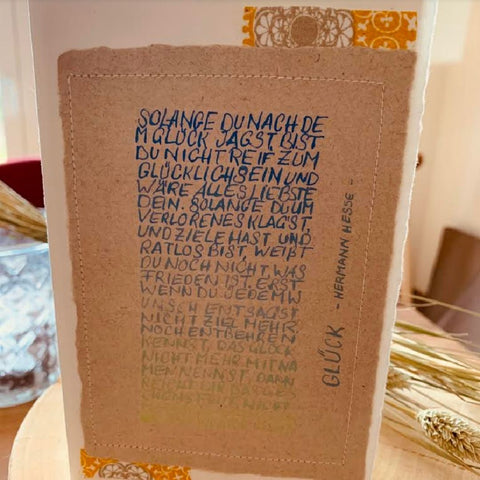 SOLANGE DU NACH DE
M GLÜCK JAGST BIST
DU NICHT REIF ZUM
GLÜCKLICHSEIN UND
WÄRE ALLES LIEBSTE
DEIN. SOLANGE DU UM
VERLORENES KLAGST,
UND ZIELE HAST UND
RATLOS BIST, WEIßT
DU NOCH NICHT, WAS
FRIEDEN IST. ERST
WENN DU JEDEM W
UNSCH ENTSAGST
NICHT ZIEL MEHR
NOCH ENTBEHREN
KENNST, DAS GLÜCK
NICHT MEHR MIT NA
MEN NENNST, DANN
GLÜCK - HERMANN HESSE -